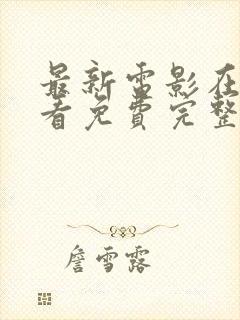 最新雷影在
看免费完整
詹雪露